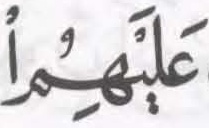 عَلَيْهِمُ اْ